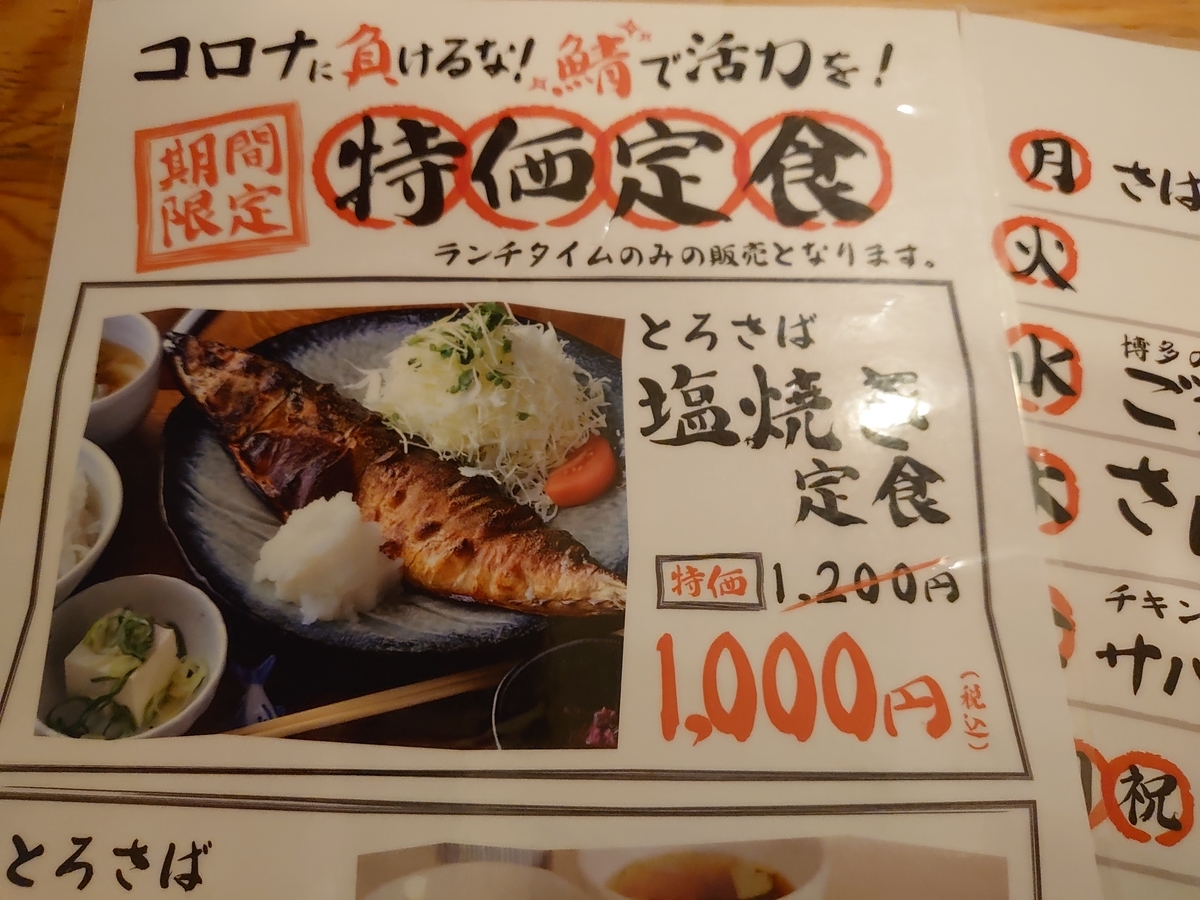 コロナに負けるな！鯖で活力を！
期間限定
特価定食
ランチタイムのみの販売となります。
とろさば
塩焼き
定食
特価 1,200円
1,000円(税込)
とろさば
月 さば
火
水 博多の
ご
木 さ
チキン
サバ
祝